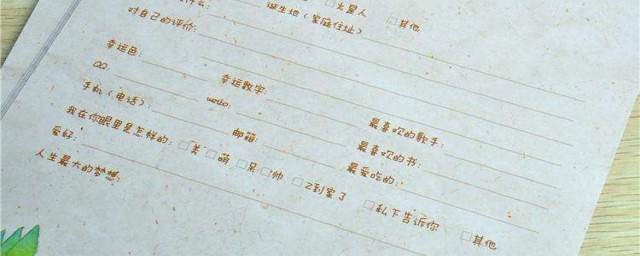 什么:
□火星人 □其他
诞生地(家庭住址)
对自己的评价:
幸运色: 幸运数字: 最喜欢的歌手:
QQ: weibo: 最喜欢的书:
手机(电话): 邮箱: 最爱吃的:
我在你眼里是怎样的: □美 □萌 □呆 □帅 □2到家了 □私下告诉你 □其他
爱好:
人生最大的梦想: